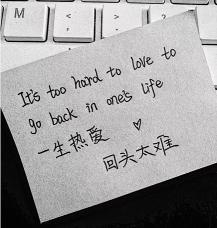 M
< ,
> .
?
It's too hard to love to
go back in one's life
一生热爱 ♡
回头太难